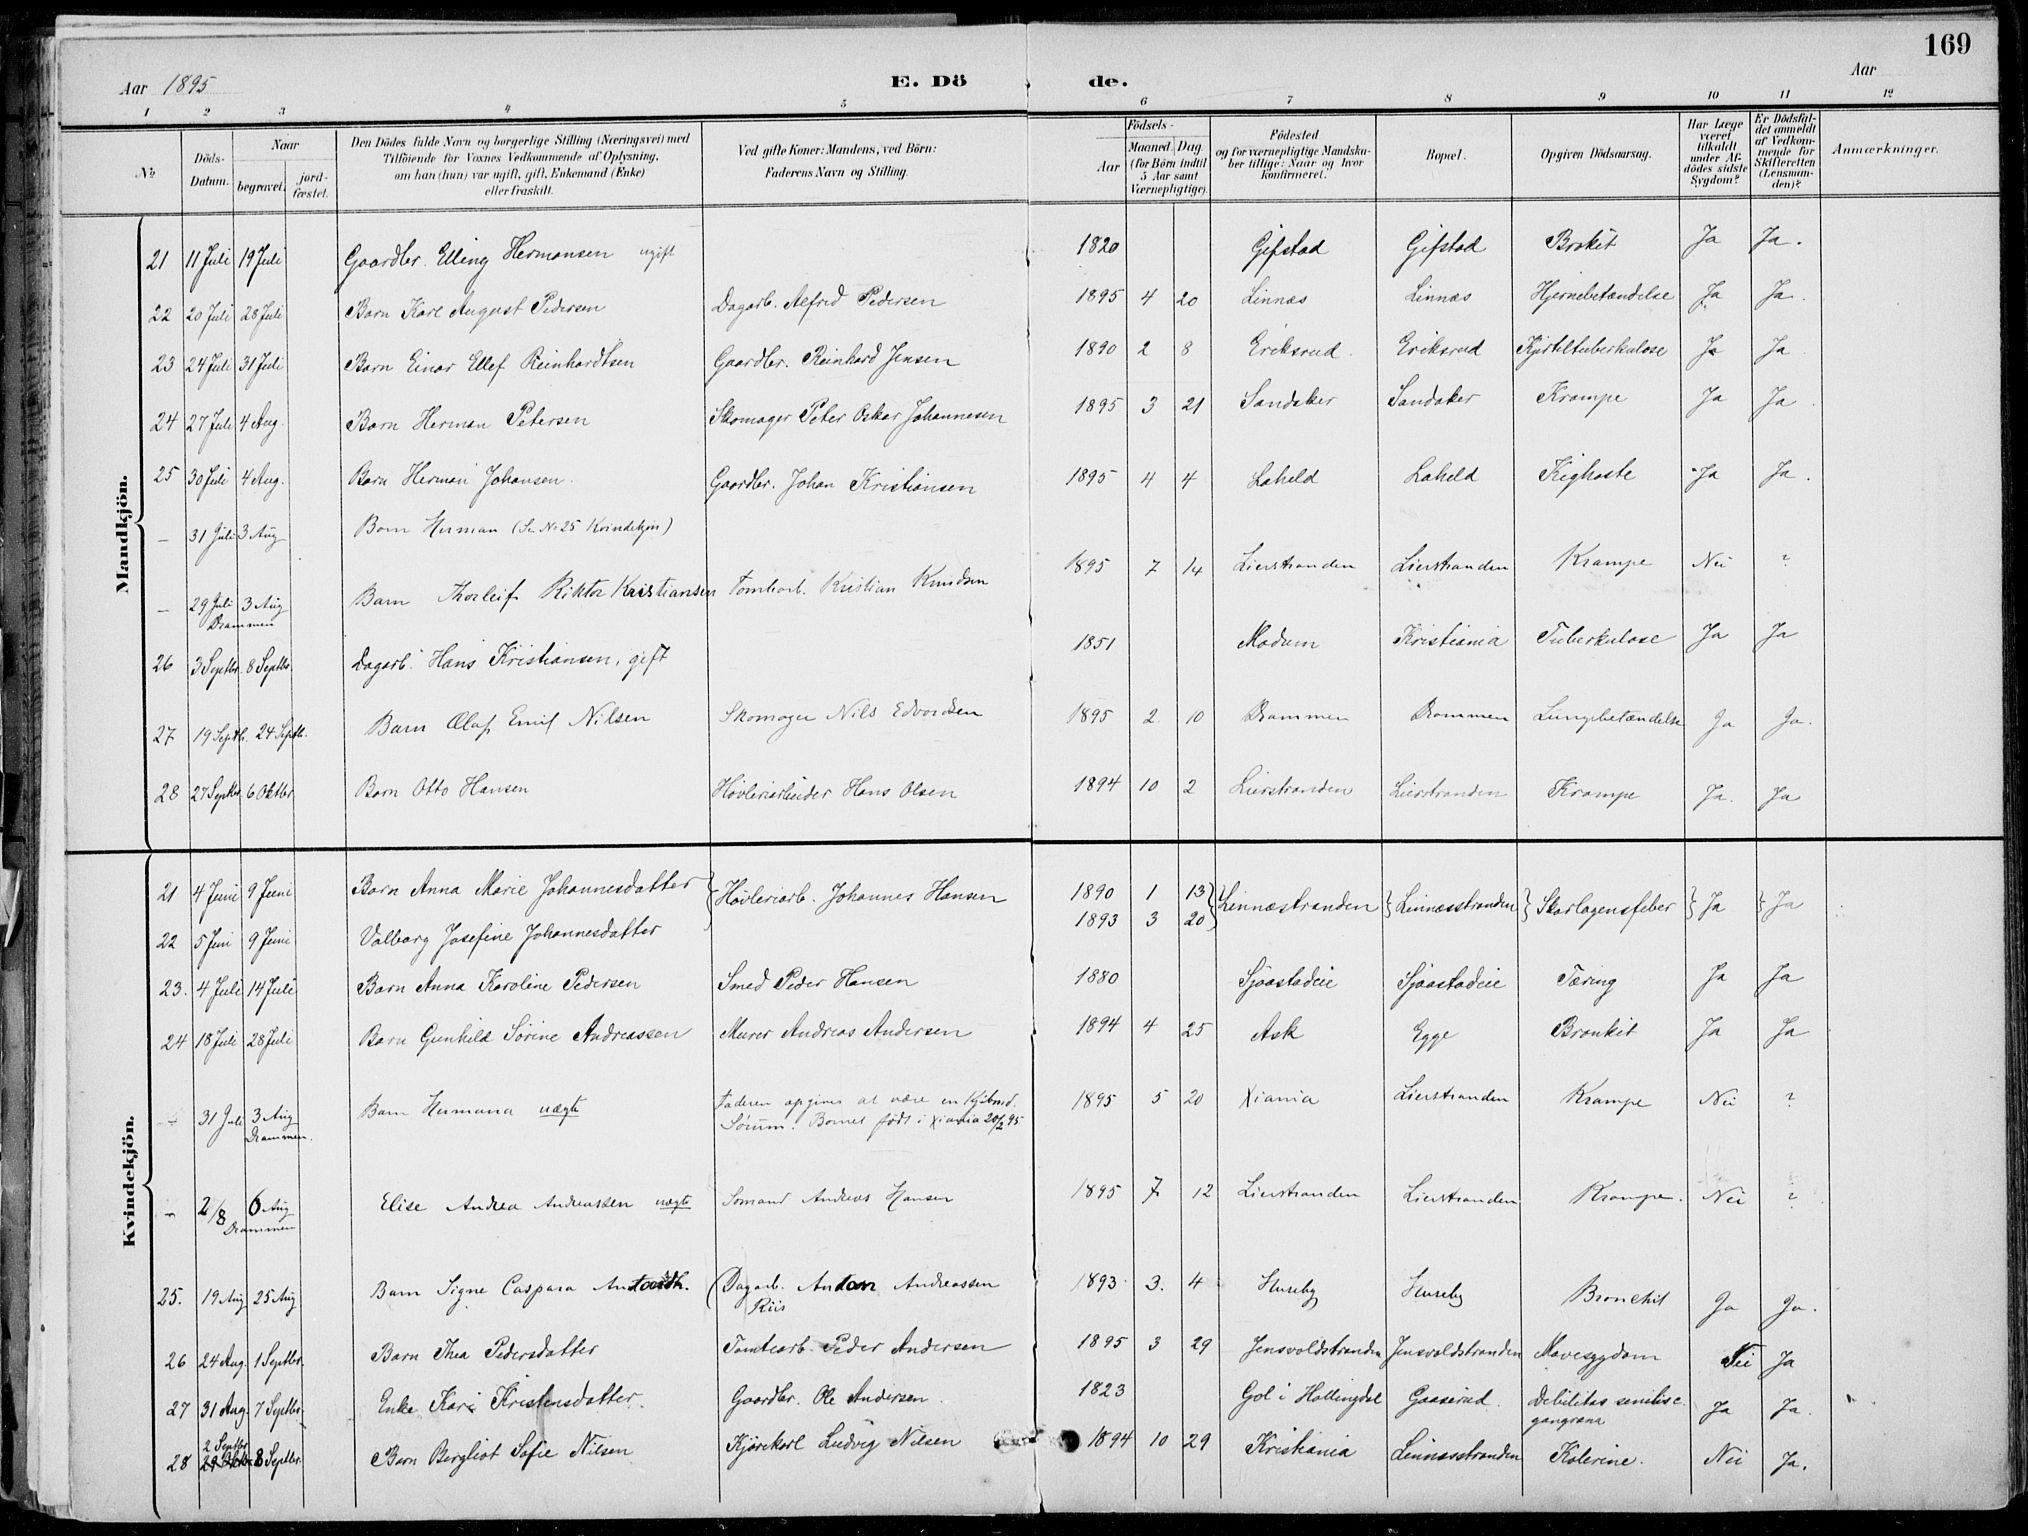 169
Aar 1895 E. Dö de. Aar
1 2 3 4 5 6 7 8 9 10 11 12
№
Döds-Datum.
Naar
begravet.
jord-fæstet.
Den Dödes fulde Navn og borgerlige Stilling (Næringsvei) med
Tilföiende for Voxnes Vedkommende af Oplysning,
om han (hun) var ugift, gift, Enkemand (Enke)
eller fraskilt.
Ved gifte Koner: Mandens, ved Börn:
Faderens Navn og Stilling.
Födsels-
Aar
Maaned. Dag
(for Börn indtil
5 Aar samt
Værnepligtige).
Födested
og for værnepligtige Mandska-
ber tillige: Naar og hvor
konfirmeret.
Bopæl.
Opgiven Dödsaarsag.
Har Læge
været
tilkaldt
under Af-
dödes sidste
Sygdom?
Er Dödsfal-
det anmeldt
af Vedkom-
mende for
Skifteretten
(Lensman-
den)?
Anmærkninger.
Mandkjön.
21 11 Juli 19 Juli Gaardbr. Elling Hermansen ugift 1820 Gifstad Gifstad Bronkit Ja Ja.
22 20 Juli 28 Juli Barn Karl August Pedersen Dagarb. Alfred Pedersen 1895 4 20 Linnæs Linnæs Hjernebetændelse Ja Ja.
23 24 Juli 31 Juli Barn Einar Ellef Reinhardtsen Gaardbr. Reinhard Jensen 1890 2 8 Eriksrud. Eriksrud Kjirteltuberkulose Ja Ja
24 27 Juli 4 Aug. Barn Herman Petersen Skomager Peter Oskar Johannesen 1895 3 21 Sandaker Sandaker Krampe Ja Ja
25 30 Juli 4 Aug. Barn Herman Johansen. Gaardbr. Johan Kristiansen 1895 4 4 Laheld Laheld Kighoste Ja Ja.
— 31 Juli 3 Aug Barn Herman (Se No 25 Kvindekjøn)
— 29 Juli 3 Aug Drammen Barn Thorleif Viktor Kristiansen Tomtearb. Kristian Knudsen 1895 7 14 Lierstranden Lierstranden Krampe Nei ?
26 3 Septbr. 8 Septbr. Dagarb. Hans Kristiansen, gift 1851 Modum Kristiania Tuberkulose Ja Ja
27 19 Septb. 24 Septb. Barn Olaf Emil Nilsen Skomager Nils Edvardsen 1895 2 10 Drammen Drammen Lungebetændelse Ja Ja.
28 27 Septbr. 6 Oktbr. Barn Otto Hansen Høvleriarbeider Hans Olsen 1894 10 2 Lierstranden Lierstranden Krampe Ja. Ja
Kvindekjön.
21 4 Juni 9 Juni Barn Anna Marie Johannesdatter } Høvleriarb. Johannes Hansen 1890 1 13 } Linnæstranden } Linnæsstranden } Skarlagensfeber } Ja } Ja
22 5 Juni 9 Juni Valborg Josefine Johannesdatter 1893 3 20
23. 4 Juli 14 Juli Barn Anna Karoline Pedersen Smed Peder Hansen 1880 Sjøastadeie Sjøastadeie Tæring Ja Ja
24 18 Juli 28 Juli Barn Gunhild Sørine Andreassen Murer Andreas Andersen 1894 4 25 Ask Egge Bronkit Ja Ja
— 31 Juli 3 Aug Drammen. Barn Hermana uægte Faderen opgives at være en Kjøbmd.
Sørum. Barnet født i Xiania 20/2 95 1895 5 20 Xiania Lierstranden Krampe Nei ?
— 2/8 6 Aug Drammen Elise Andrea Andreassen uægte Sømand Andreas Hansen 1895 7 12 Lierstranden Lierstranden Krampe. Nei ?
25. 19 Aug 25 Aug Barn Signe Caspara Antondt. (Dagarb. Anton Andreassen
Riis 1893 3. 4 Huseby Huseby Bronchit Ja Ja.
26 24 Aug. 1 Septbr. Barn Thea Pedersdatter Tomtearb. Peder Andersen 1895 3 29 Jensvoldstranden Jensvoldstranden Mavesygdom Nei Ja
27 31 Aug. 7 Septbr. Enke Kari Kristensdatter. Gaardbr. Ole Andersen. 1823 Gol i Hallingdal Gaaserud. Debilitas senilis c.
gangræna Ja Ja.
28 2 Septbr 8 Septbr. Barn Bergliot Sofie Nilsen Kjørekarl Ludvig Nilsen 1894 10 29 Kristiania Linnæsstranden Kolerine. Nei Ja.